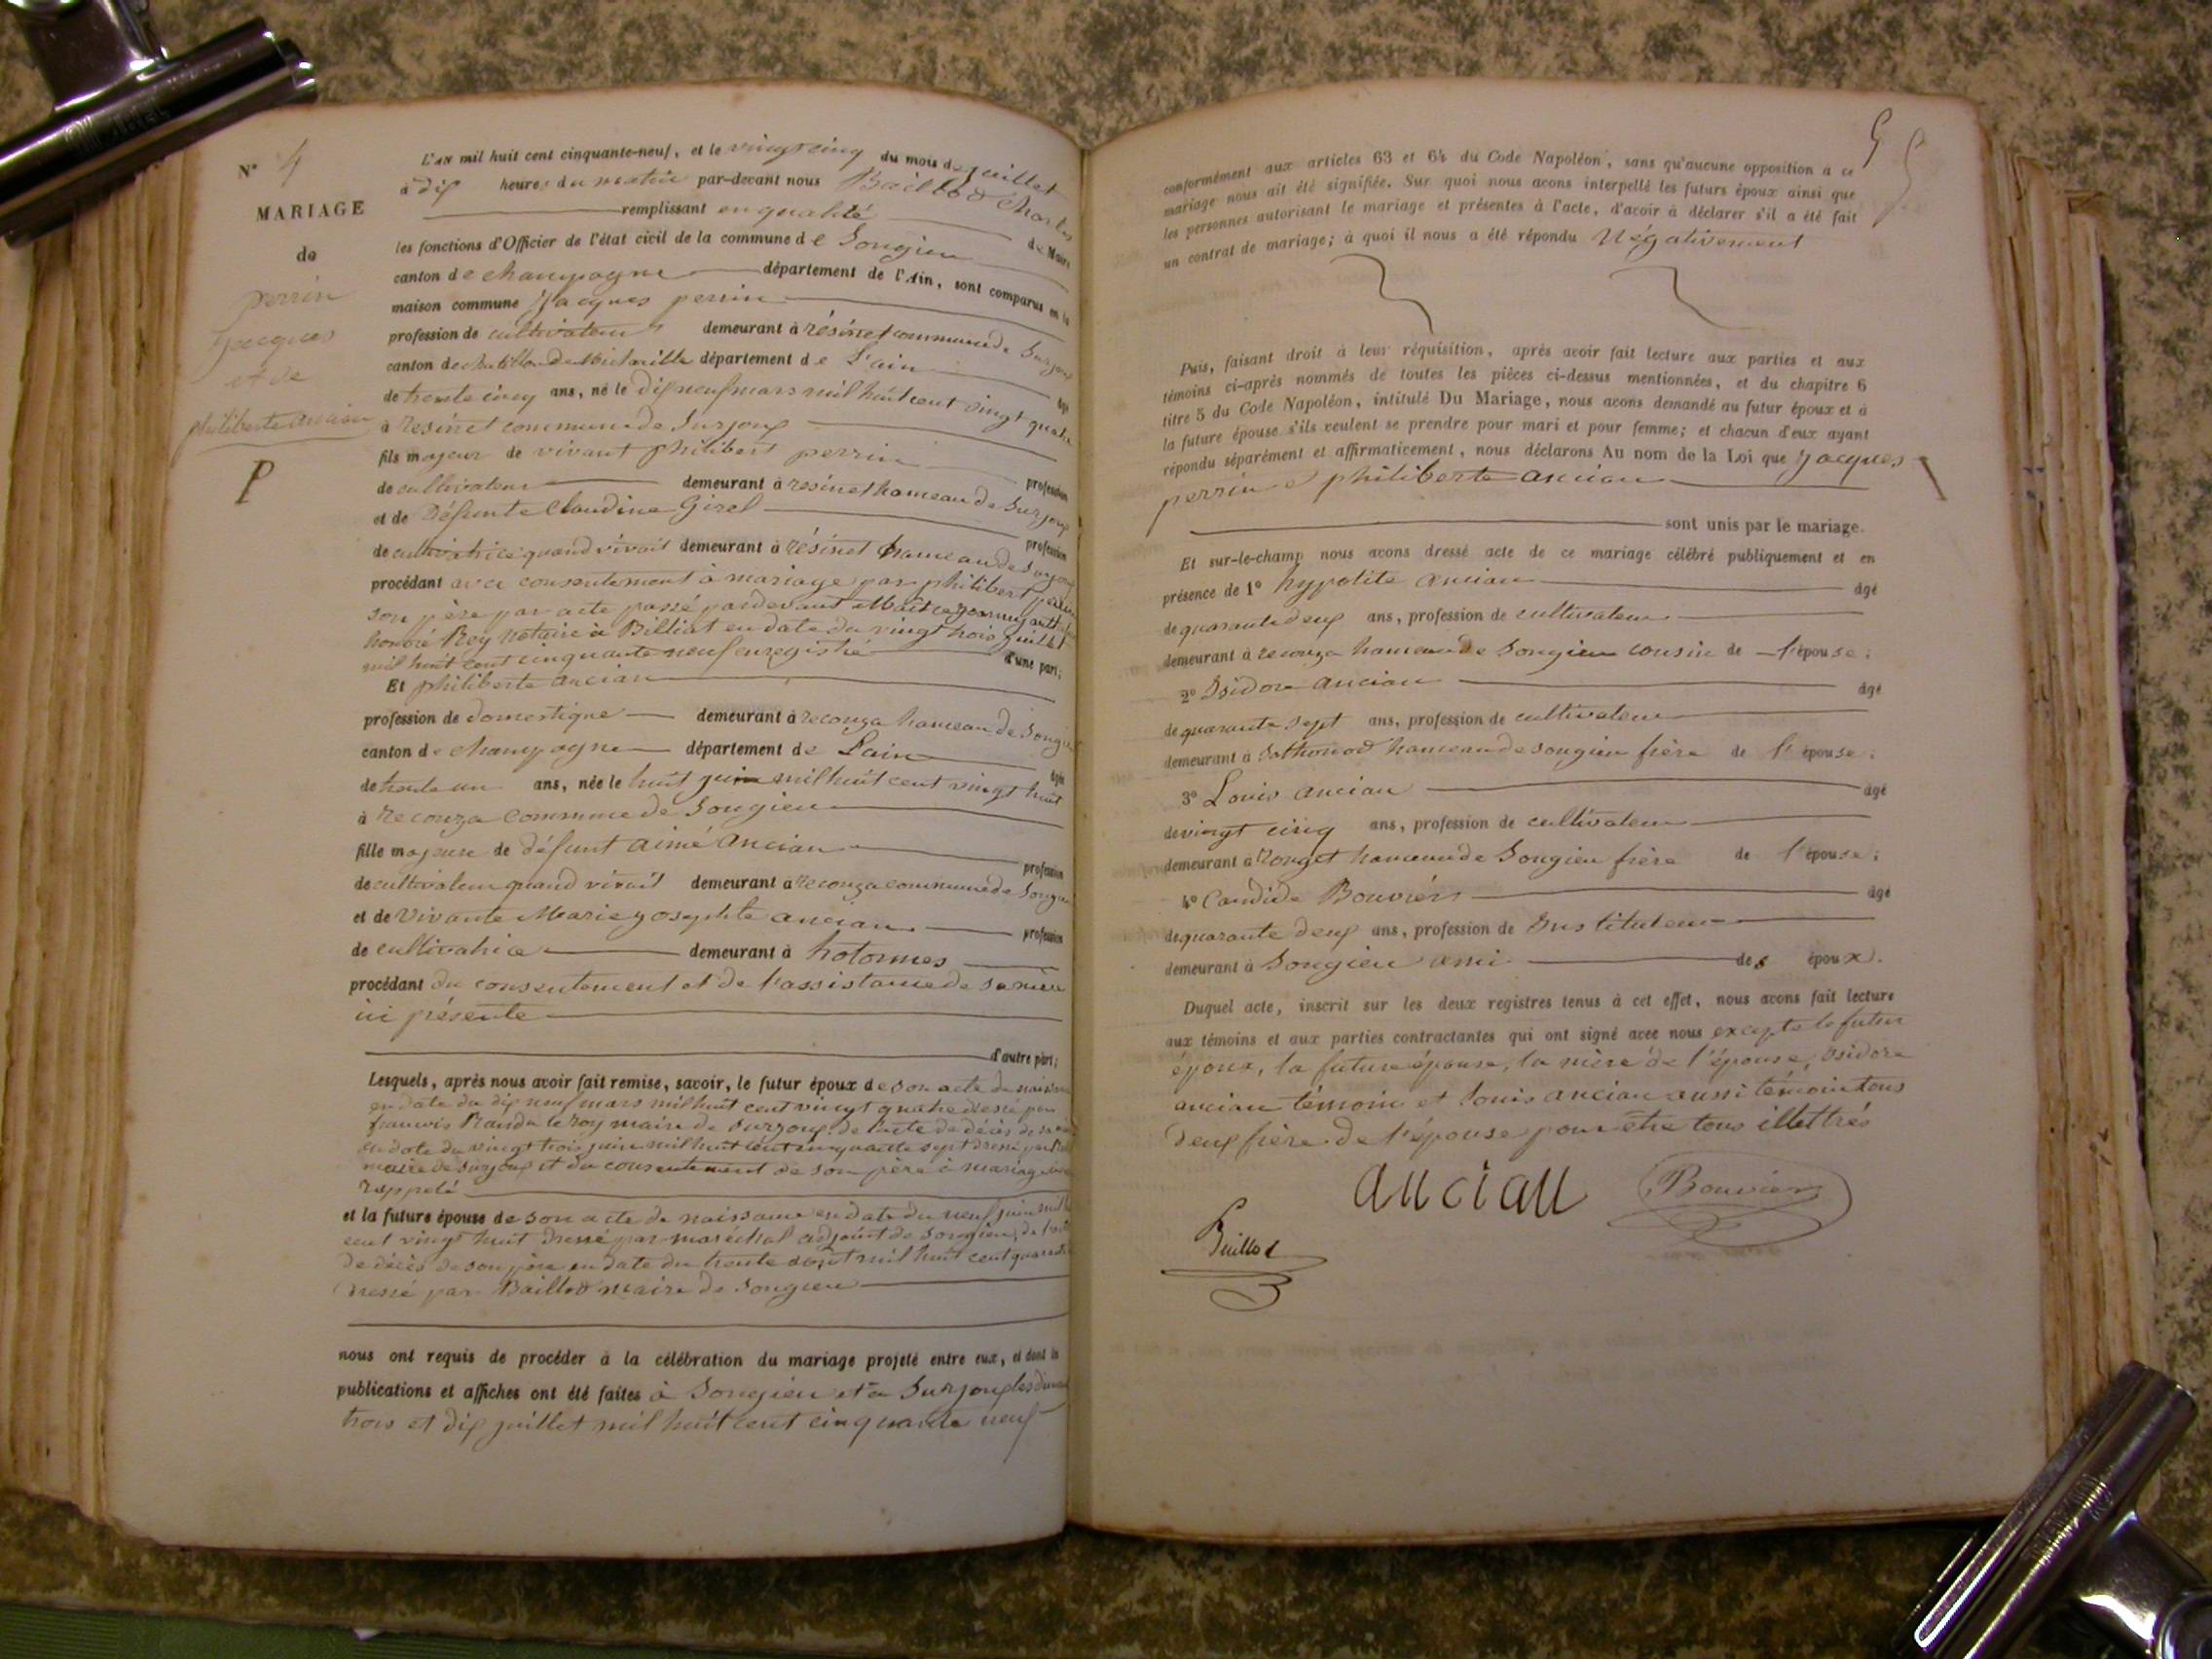 N° 4
MARIAGE
de
perrin
jacques
et de
philiberte ancian
P
L'AN mil huit cent cinquante-neuf, et le vingt cinq du mois de juillet
à dix heures du matin par-devant nous Baillod Charles
remplissant en qualité de Maire
les fonctions d'Officier de l'état civil de la commune de Songieu
canton de champagne département de l'Ain, sont comparus en la
maison commune Jacques perrin
profession de cultivateur demeurant à résinet commune de Surjoux
canton de chatillon de Michaille département de L'ain
de trente cinq ans, né le dix neuf mars mil huit cent vingt quatre
à résinet commune de Surjoux
fils majeur de vivant philibert perrin profession
de cultivateur demeurant à résinet hameau de Surjoux
et de Défunte Claudine Girel profession
de cultivatrice quand vivait demeurant à résinet hameau de Surjoux
procédant avec consentement à mariage par philibert perrin
son père par acte passé pardevant Maître
honoré Roy notaire à Billiat en date du vingt trois juillet
mil huit cent cinquante neuf enregistré d'une part;
Et philiberte ancian
profession de domestique demeurant à reconza hameau de Songieu
canton de champagne département de L'ain âgée
de trente un ans, née le huit juin mil huit cent vingt huit
à reconza commune de Songieu
fille majeure de défunt aimé ancian profession
de cultivateur quand vivait demeurant à reconza commune de Songieu
et de Vivante Marie yosephte ancian profession
de cultivatrice demeurant à hotonnes
procédant du consentement et de l'assistance de sa mère
ici présente
d'autre part;
Lesquels, après nous avoir fait remise, savoir, le futur époux de son acte de naissance
en date du dix neuf mars mil huit cent vingt quatre dressé par
françois maire de Surjoux, de l'acte de décès de sa mère
en date du vingt trois juin mil huit cent cinquante sept dressé par
maire de Surjoux et du consentement de son père à mariage
rappelé
et la future épouse de son acte de naissance en date du neuf juin mil huit
cent vingt huit dressé par maréchal adjoint de Songieu, de l'acte
de décès de son père en date du trente août mil huit cent quarante
dressé par Baillod maire de Songieu
nous ont requis de procéder à la célébration du mariage projeté entre eux, et dont les
publications et affiches ont été faites à Songieu et à Surjoux les dimanches
trois et dix juillet mil huit cent cinquante neuf
5
conformément aux articles 63 et 64 du Code Napoléon, sans qu'aucune opposition à ce
mariage nous ait été signifiée. Sur quoi nous avons interpellé les futurs époux ainsi que
les personnes autorisant le mariage et présentes à l'acte, d'avoir à déclarer s'il a été fait
un contrat de mariage; à quoi il nous a été répondu Négativement
Puis, faisant droit à leur réquisition, après avoir fait lecture aux parties et aux
témoins ci-après nommés de toutes les pièces ci-dessus mentionnées, et du chapitre 6
titre 5 du Code Napoléon, intitulé Du Mariage, nous avons demandé au futur époux et à
la future épouse s'ils veulent se prendre pour mari et pour femme; et chacun d'eux ayant
répondu séparément et affirmativement, nous déclarons Au nom de la Loi que Jacques
perrin et philiberte ancian
sont unis par le mariage.
Et sur-le-champ nous avons dressé acte de ce mariage célébré publiquement et en
présence de 1° hypolite ancian âgé
de quarante deux ans, profession de cultivateur
demeurant à reconza hameau de Songieu cousin de l'épouse;
2° Isidore ancian âgé
de quarante sept ans, profession de cultivateur
demeurant à Sothonod hameau de songieu frère de l'épouse;
3° Louis ancian âgé
de vingt cinq ans, profession de cultivateur
demeurant à ronget hameau de Songieu frère de l'épouse;
4° Candide Bouvier âgé
de quarante deux ans, profession de Instituteur
demeurant à Songieu ami des époux.
Duquel acte, inscrit sur les deux registres tenus à cet effet, nous avons fait lecture
aux témoins et aux parties contractantes qui ont signé avec nous excepté le futur
époux, la future épouse, la mère de l'épouse, Isidore
ancian témoin et Louis ancian aussi témoin tous
deux frère de l'épouse pour être tous illettrés
ancian Bouvier